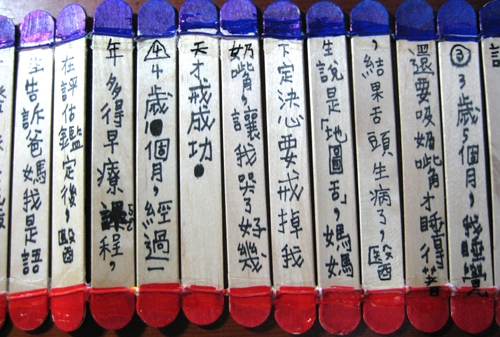 ③3歲5個月,我睡覺
還要吸奶嘴才睡得著
,結果舌頭生病了,醫
生說是「地圖舌」,媽媽
下定決心要戒掉我
奶嘴,讓我哭了好幾
天才戒成功。
④4歲個月,經過一
年多得早療課程,
在評估鑑定後,醫
生告訴爸媽我是語